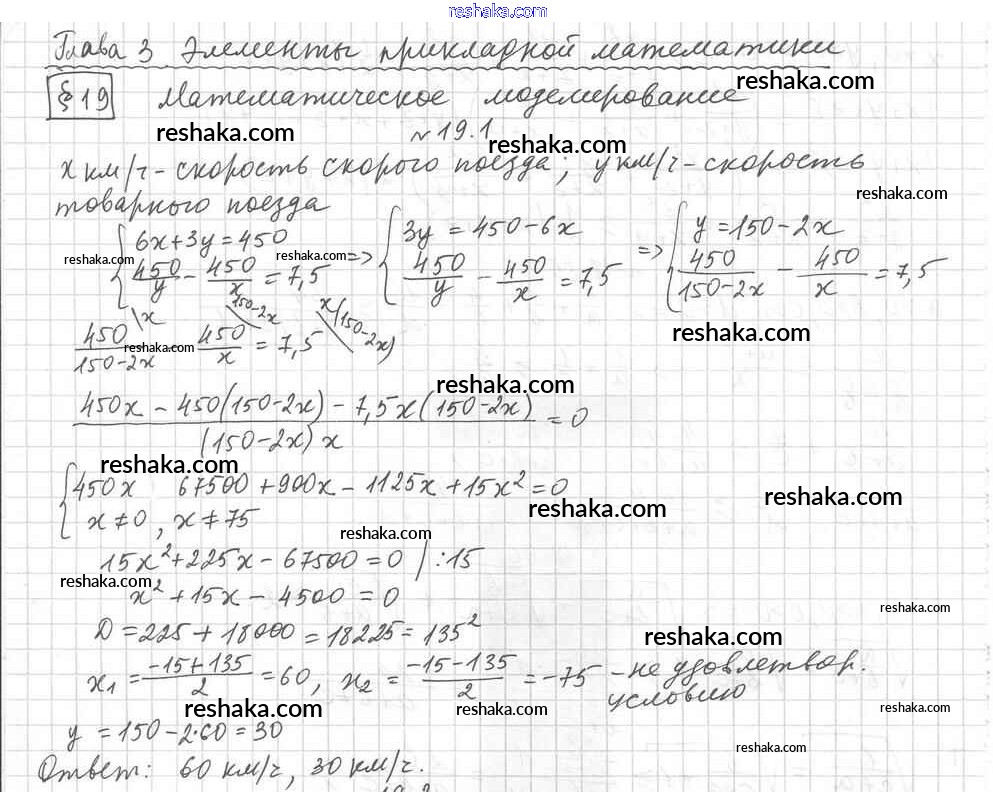 reshaka.com
Глава 3 Элементы прикладной математики
reshaka.com
§19 Математическое моделирование
reshaka.com
№19.1
reshaka.com
x км/ч - скорость скорого поезда; y км/ч - скорость
reshaka.com
товарного поезда
{6x+3y=450 => {3y = 450-6x => {y=150-2x
reshaka.com reshaka.com
450/y - 450/x = 7,5 450/y - 450/x = 7,5 450/(150-2x) - 450/x = 7,5
reshaka.com
450/(150-2x) \x 450/x \150-2x = 7,5 \x(150-2x)
reshaka.com
reshaka.com
(450x - 450(150-2x) - 7,5x(150-2x))/((150-2x)x) = 0
reshaka.com
{450x 67500+900x-1125x+15x²=0
reshaka.com
reshaka.com
x≠0, x≠75
reshaka.com
15x²+225x-67500=0 |:15
reshaka.com
x²+15x-4500=0
reshaka.com
D=225+18000=18225=135²
reshaka.com
x₁=(-15+135)/2=60, x₂=(-15-135)/2=-75 - не удовлетвор.
условию
reshaka.com reshaka.com reshaka.com
y=150-2·60=30
reshaka.com
Ответ: 60 км/ч, 30 км/ч.
reshaka.com